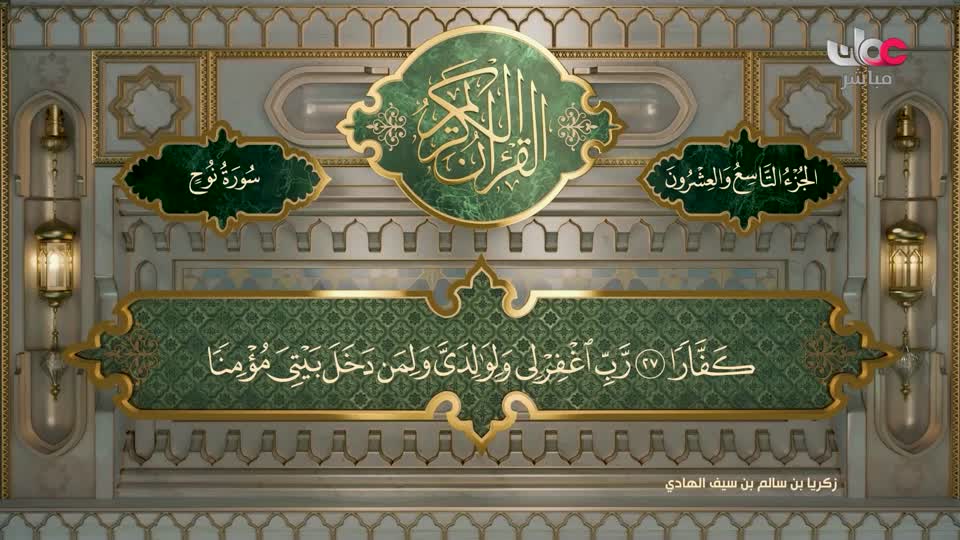 عمان
مباشر
القرآن الكريم
الجزء التاسع والعشرون
سورة نوح
كَفَّارًا ٢٧ رَّبِّ ٱغْفِرْ لِى وَلِوَٰلِدَىَّ وَلِمَن دَخَلَ بَيْتِىَ مُؤْمِنًا
زكريا بن سالم بن سيف الهادي